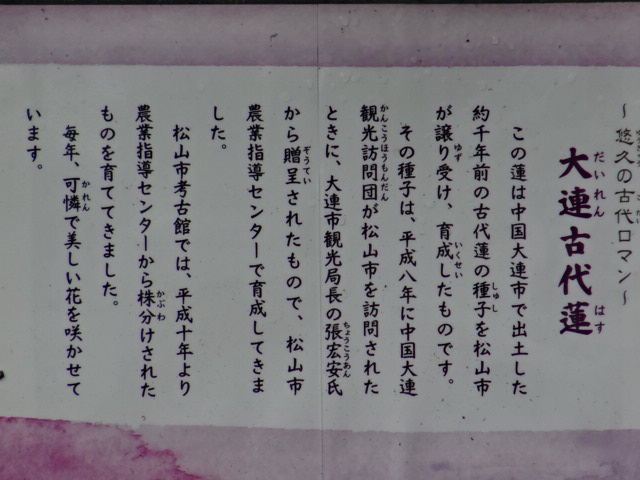 ～悠久の古代ロマン～
大連古代蓮
だいれん はす
この蓮は中国大連市で出土した
約千年前の古代蓮の種子を松山市
しゅし
が譲り受け、育成したものです。
ゆず いくせい
その種子は、平成八年に中国大連
観光訪問団が松山市を訪問された
かんこうほうもんだん
ときに、大連市観光局長の張宏安氏
ちょうこうあん
から贈呈されたもので、松山市
ぞうてい
農業指導センターで育成してきま
した。
松山市考古館では、平成十年より
農業指導センターから株分けされた
かぶわ
ものを育ててきました。
毎年、可憐で美しい花を咲かせて
かれん
います。